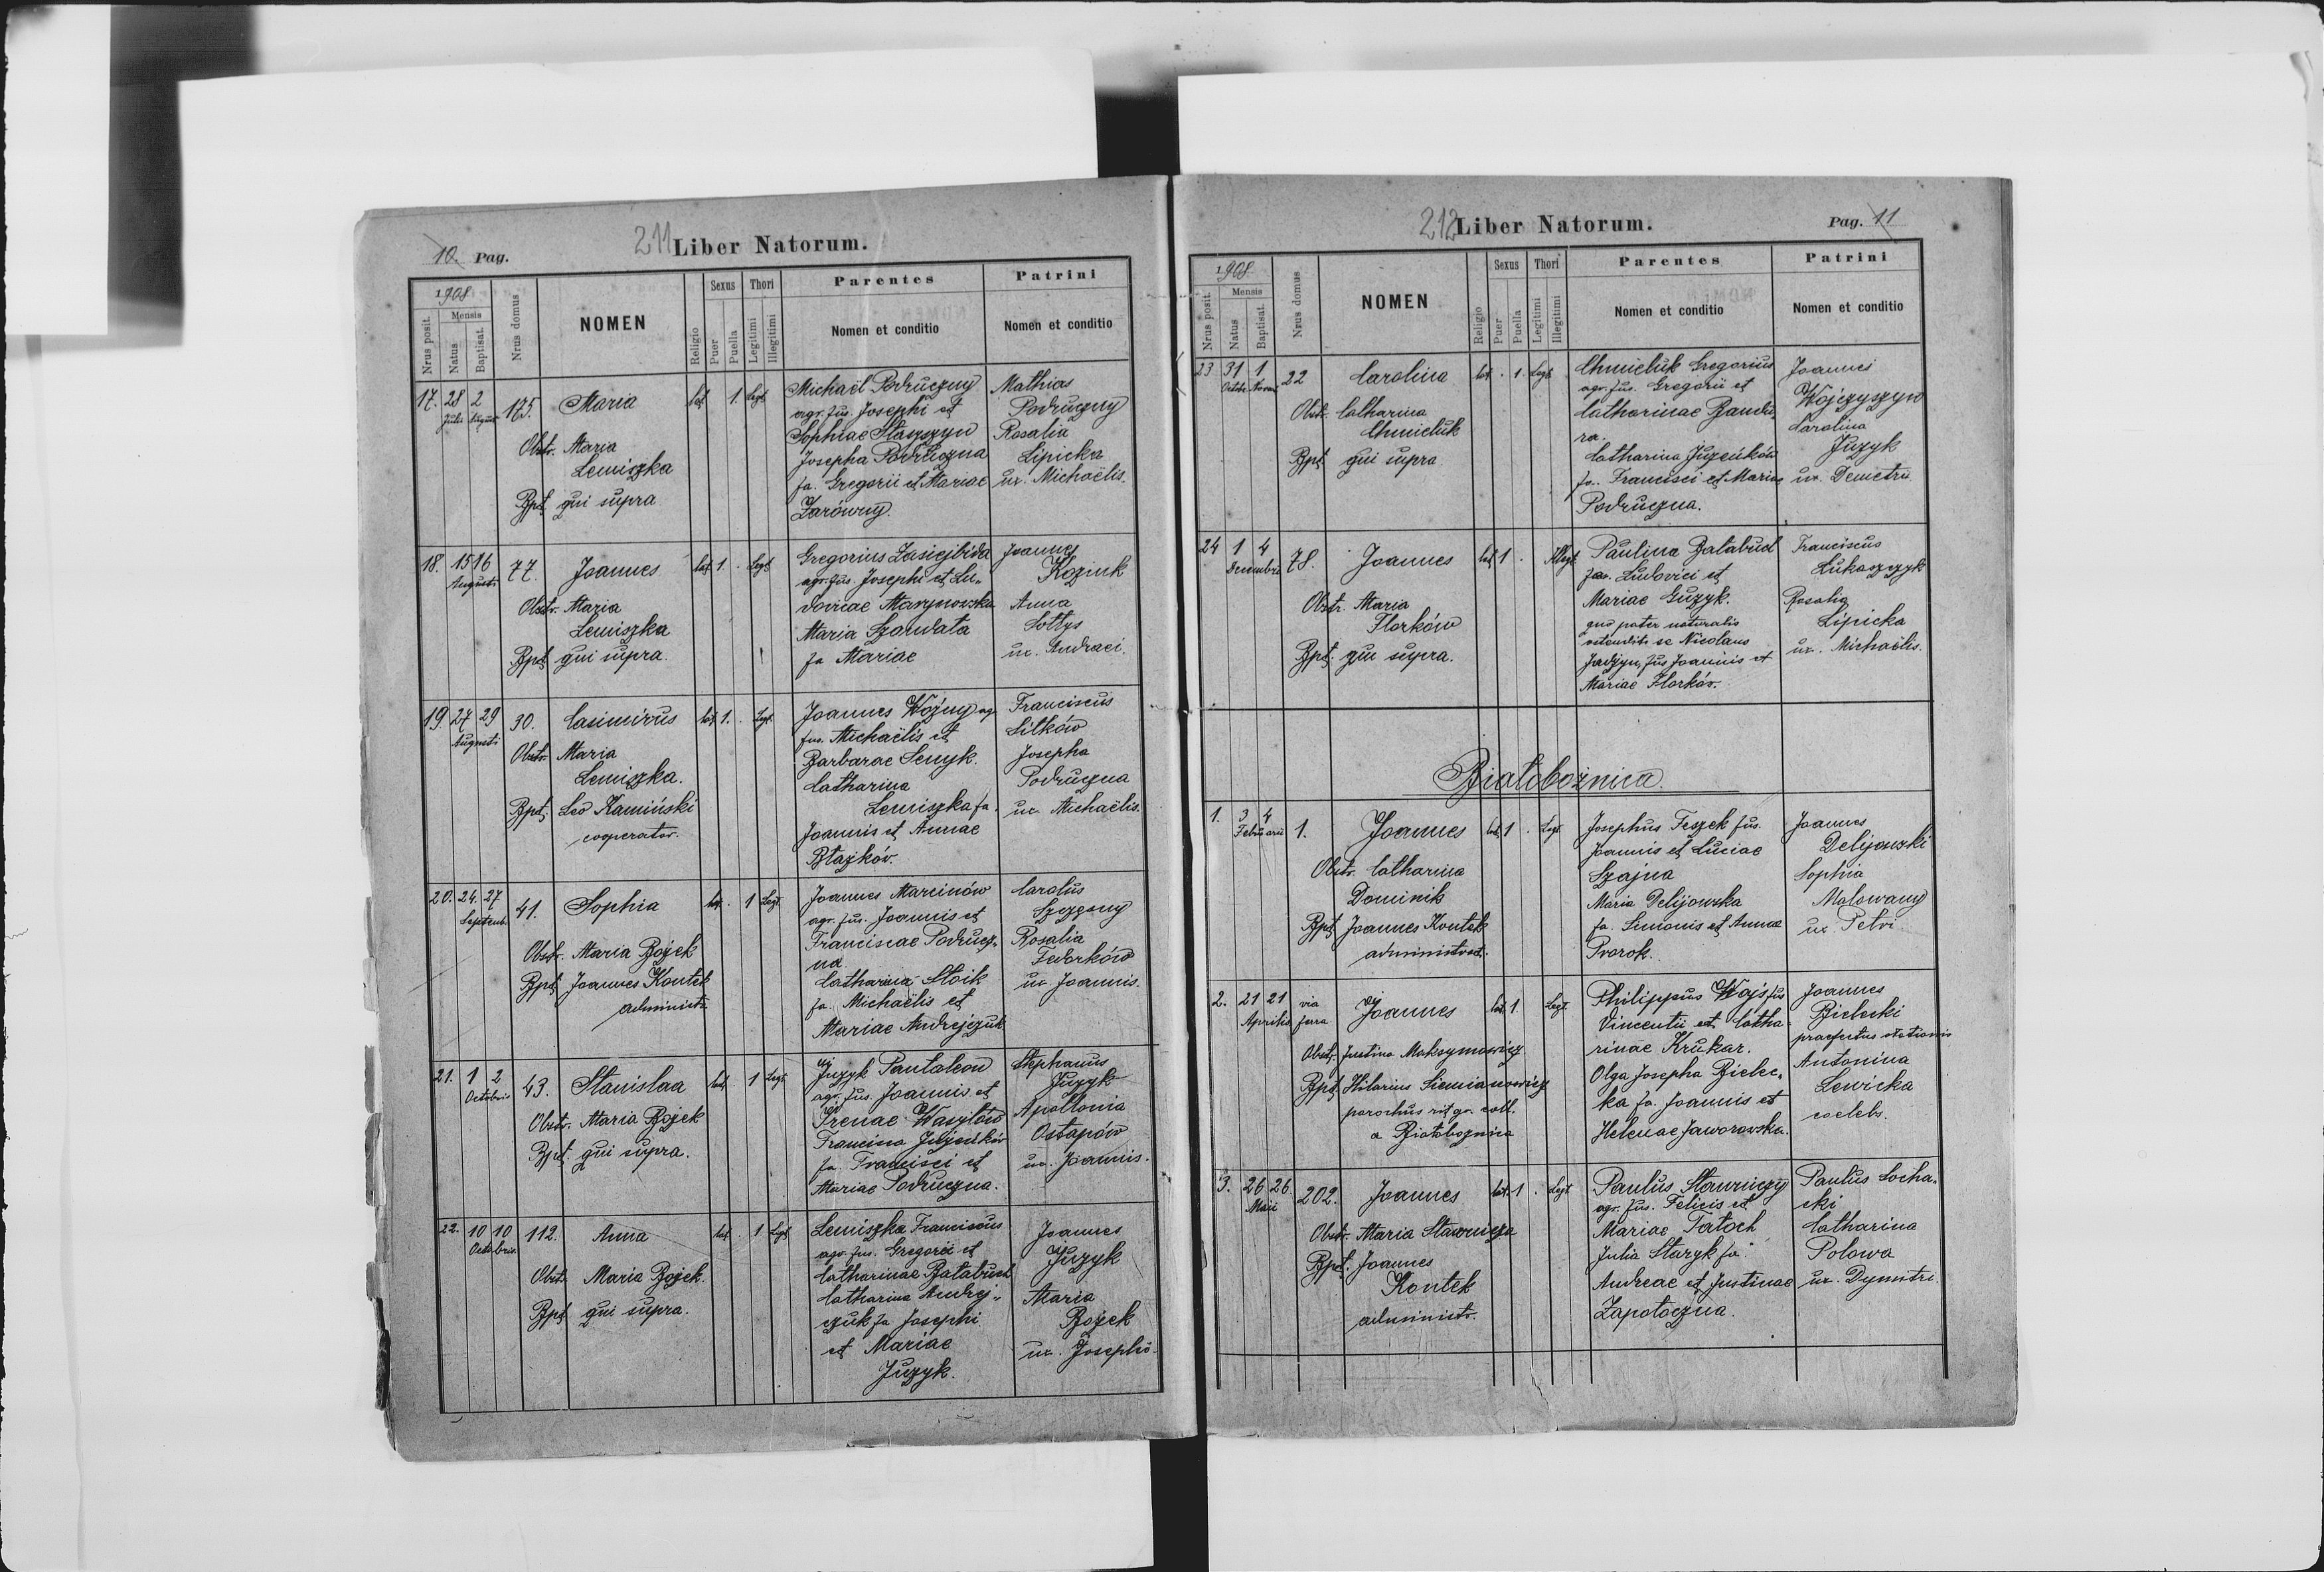 10. Pag.
211 Liber Natorum.
1908
Nrus posit.
Mensis
Natus
Baptisat.
Nrus domus
NOMEN
Religio
Sexus
Puer
Puella
Thori
Legitimi
Illegitimi
Parentes
Nomen et conditio
Patrini
Nomen et conditio
17. 28 Julii 2 August 175. Maria lat. 1. Legt.
Obstr. Maria
Lemiszka
Bpt. qui supra
Michaël Podruczny
agr. fus. Josephi et
Sophiae Staszszyn
Josepha Podruczna
fa. Gregorii et Mariae
Zarówny.
Mathias
Podruczny
Rosalia
Lipicka
ux. Michaëlis.
18. 15 16 Augusti 77. Joannes lat. 1. Legt.
Obstr. Maria
Lemiszka
Bpt. qui supra.
Gregorius Zasiejbida
agr. fus. Josephi et Lu„
dovicae Marynowska
Maria Szandata
fa Mariae
Joannes
Koziuk
Anna
Sołtys
ux. Andraei.
19. 27 29 Augusti 30. Casimirus lat. 1. Legt.
Obstr. Maria
Lemiszka.
Bpt. Leo Kamiński
cooperator.
Joannes Woźny ag.
fus. Michaëlis et
Barbarae Senyk.
Catharina
Lemiszka fa.
Joannis et Annae
Błażków.
Franciscus
Litków
Josepha
Podruczna
ux Michaëlis.
20. 24. 27 Septemb. 41. Sophia lat. 1 Legt.
Obstr. Maria Bożek
Bpt. Joannes Kontek
administr.
Joannes Marcinów
agr. fus. Joannis et
Franciscae Podrucz„
na.
Catharina Stoik
fa. Michaëlis et
Mariae Andrejczuk
Carolus
Szczęsny
Rosalia
Fedorków
ux Joannis.
21. 1 2 Octobris 43. Stanislaa lat. 1 Legt.
Obstr. Maria Bożek
Bpt. qui supra.
Juzyk Pantaleon
agr. fus. Joannis et
Irenae Wasylów
Francisca Juzeńków
fa. Francisci et
Mariae Podruczna.
Stephanus
Juzyk
Apollonia
Ostapów
ux. Joannis.
22. 10 10 Octobris. 112. Anna lat. 1 Legt
Obstr. Maria Bożek.
Bpt. qui supra.
Lemiszka Franciscus
agr. fus. Gregorii et
Catharinae Bałabuch
Catharina Andrej„
czuk fa Josephi
et Mariae
Juzyk.
Joannes
Juzyk
Maria
Bożek
ux. Josephi.
212 Liber Natorum.
Pag. 11
1908
Nrus posit.
Mensis
Natus
Baptisat.
Nrus domus
NOMEN
Religio
Sexus
Puer
Puella
Thori
Legitimi
Illegitimi
Parentes
Nomen et conditio
Patrini
Nomen et conditio
23 31 Octobr. 1 Novem. 22 Carolina lat. . 1. Legt.
Obstr. Catharina
Chmieluk
Bpt. qui supra.
Chmieluk Gregorius
agr. fus. Gregorii et
Catharinae Bandu„
ra.
Catharina Juzeńków
fa. Francisci et Mariae
Podruczna.
Joannes
Wójczyszyn
Carolina
Juzyk
ux. Demetrii.
24 1 4 Decembris 78. Joannes lat. 1 . Illegt.
Obstr. Maria
Florków
Bpt. qui supra.
Paulina Bałabuch
fa. Ludovici et
Mariae Guzyk.
qua pater naturalis
ostendit se Nicolaus
Jadzyn, fus Joannis et
Mariae Florków.
Franciscus
Łukaszczyk
Rosalia
Lipicka
ux. Michaëlis.
Białobożnica.
1. 3 4 Februarii 1. Joannes lat. 1 . Legt.
Obstr. Catharina
Dominik
Bpt. Joannes Kontek
administrat.
Josephus Teszek fus.
Joannis et Luciae
Szajna
Maria Delijowska
fa. Simonis et Annae
Prorok.
Joannes
Delijowski
Sophia
Malowany
ux. Petri.
2. 21 21 Aprilis via ferra Joannes lat. 1 Legt.
Obstr. Justina Maksymowicz
Bpt. Hilarius Siemianowicz
parochus rit. gr. cath.
a Białobożnica
Philippus Wajs fus
Vincentii et Catha„
rinae Krukar.
Olga Josepha Bielec„
ka fa. Joannis et
Helenae Jaworowska.
Joannes
Bielecki
praefectus stationis
Antonina
Lewicka
caelebs.
3. 26 26. Maii 202. Joannes lat. 1 . Legt
Obstr. Maria Stawnicza
Bpt. Joannes
Kontek
administr.
Paulus Stawniczy
agr. fus. Felicis et
Mariae Tatoch
Julia Staryk fa.
Andreae et Justinae
Zapotoczna.
Paulus Socha„
cki
Catharina
Polowa
ux. Dymitri.